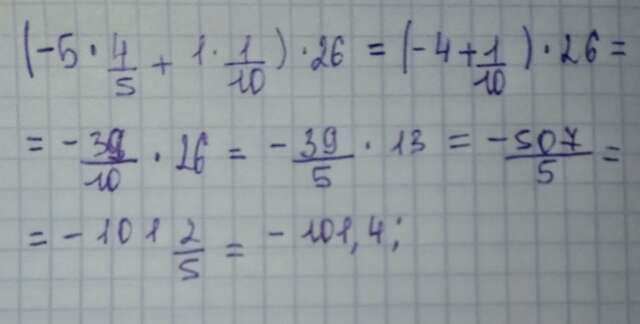 (-5 · 4/5 + 1 · 1/10) · 26 = (-4 + 1/10) · 26 =
= - 39/10 · 26 = - 39/5 · 13 = -507/5 =
= - 101 2/5 = - 101,4;